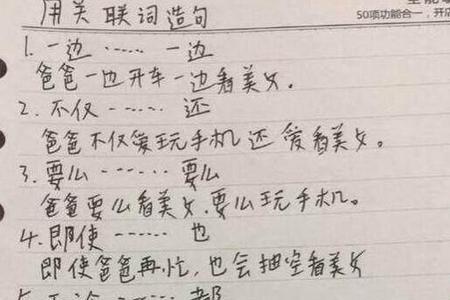 用关联词造句
50项功能合一，开店
1. 一边 ······ 一边
爸爸一边开车一边看美女。
2. 不仅 ······ 还
爸爸不仅爱玩手机还爱看美女。
3. 要么 ······ 要么
爸爸要么看美女，要么玩手机。
4. 即使 ······ 也
即使爸爸再忙，也会抽空看美女